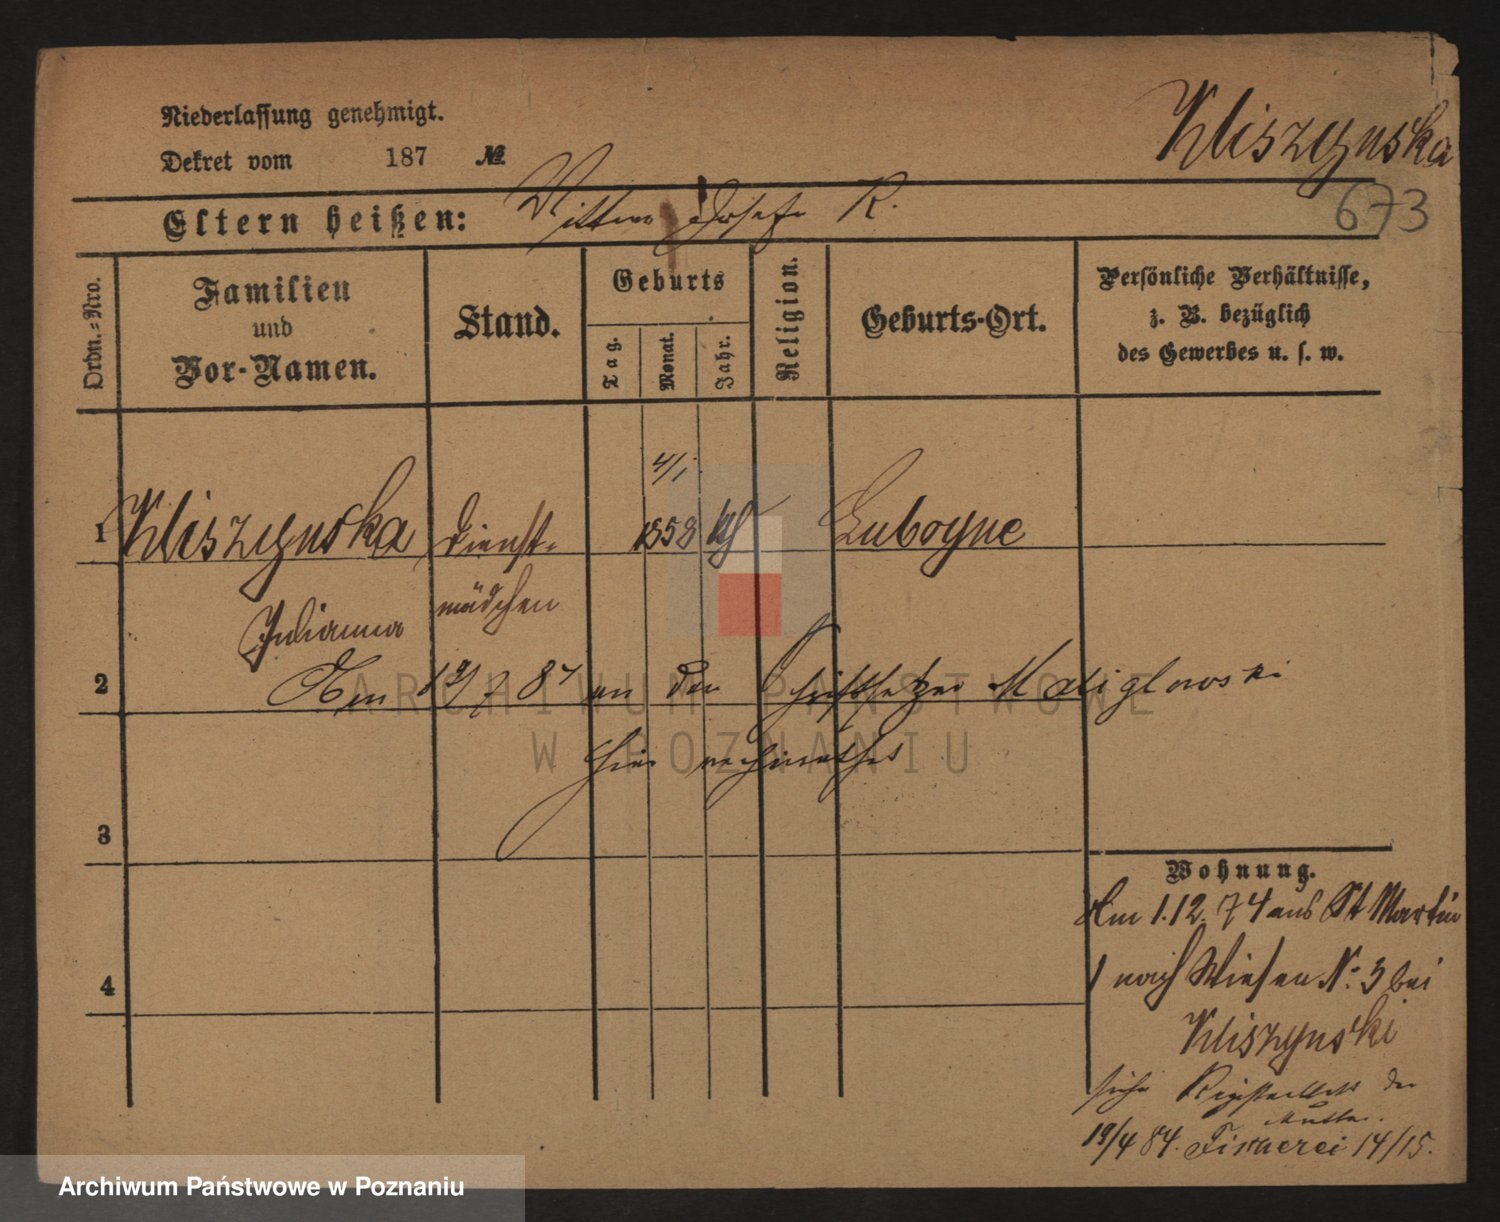 Niederlassung genehmigt.
Kliszynska
Dekret vom 187 №
673
Eltern heißen: Josefa K.
Ordn.-Nro.
Familien
und
Vor-Namen.
Stand.
Geburts
Tag. Monat. Jahr.
Religion.
Geburts-Ort.
Persönliche Verhältnisse,
z. B. bezüglich
des Gewerbes u. s. w.
4/1
1 Kliszynska Dienst- 1858 kth Luboyne
Julianna mädchen
2 Am 19/7 87 an den Schriftsetzer Matiglowski
hier verheirathet
3
4
Wohnung.
Am 1.12.74 aus St Martin
1 nach Wiesen N: 3 bei
Kliszynski
siehe Registerblatt der
Mutter.
19/4 84. Fischerei 14/15.
ARCHIWUM PAŃSTWOWE
W POZNANIU
Archiwum Państwowe w Poznaniu